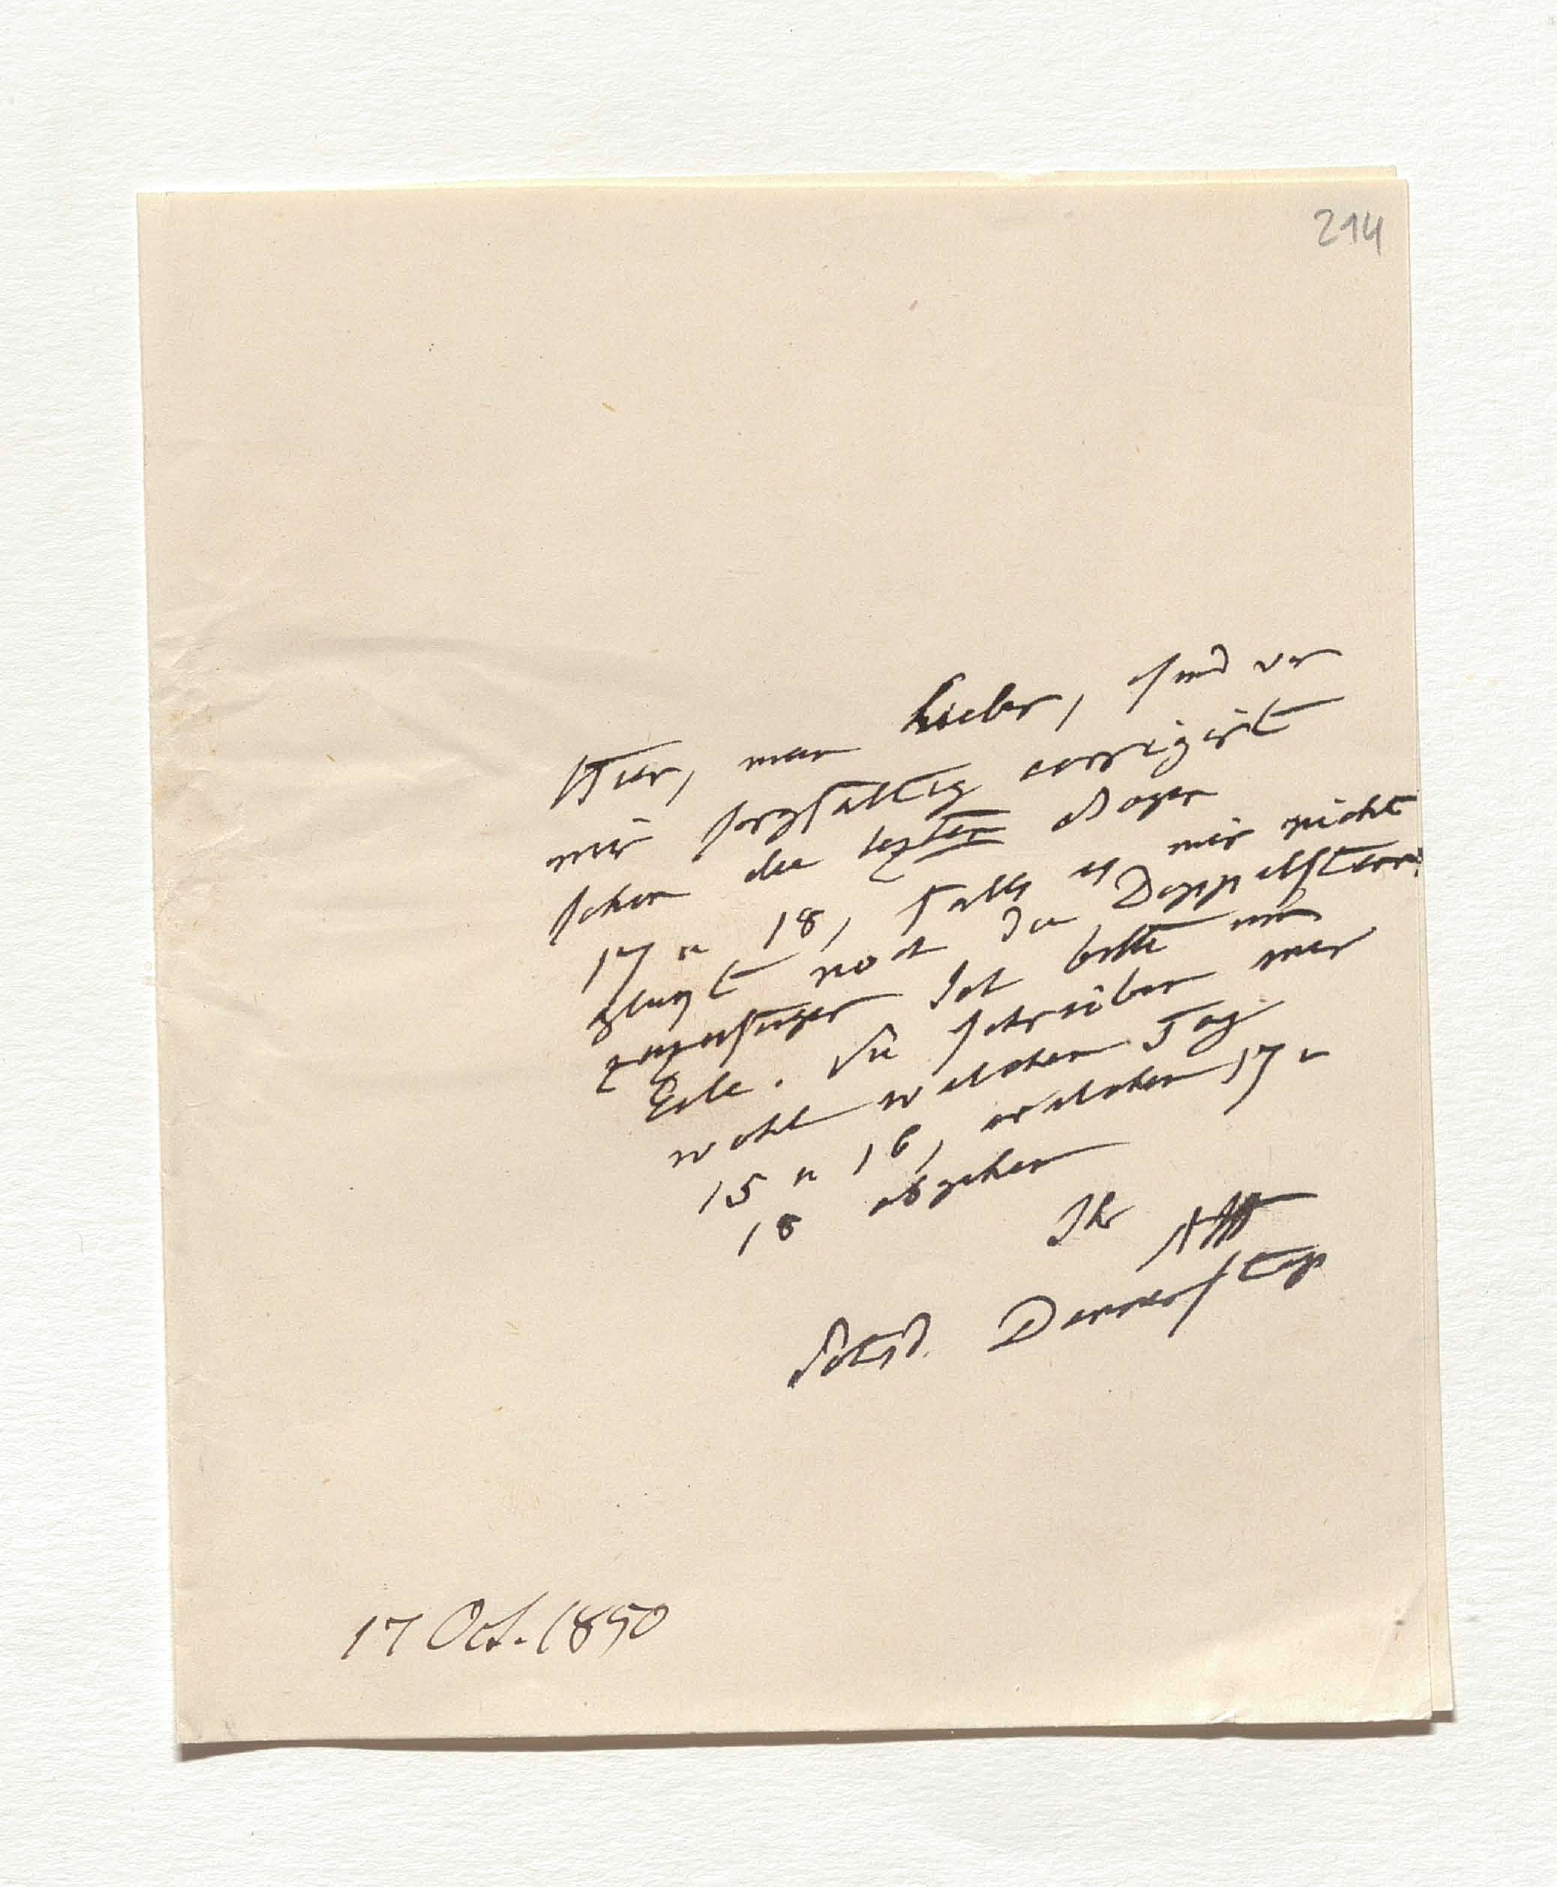 214
Hier, mein Lieber, sind von
mir sorgfältig corrigirt
schon die lezten Bogen
17 u 18, falls es mir nicht
glückt noch die Doppelsterne
zuzufügen Ich bitte um
Eile. Sie schreiben mir
wohl welchen Tag
15 u 16, welchen 17 u
18 abgehen
Ihr AHt
Potsd. Donnerstag
17 Oct. 1850